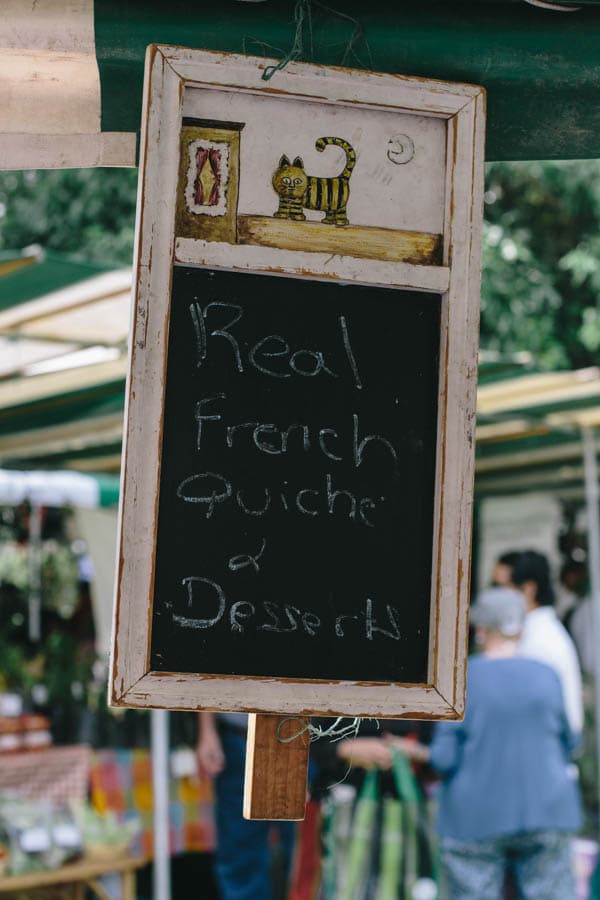 Real
French
Quiche
&
Desserts